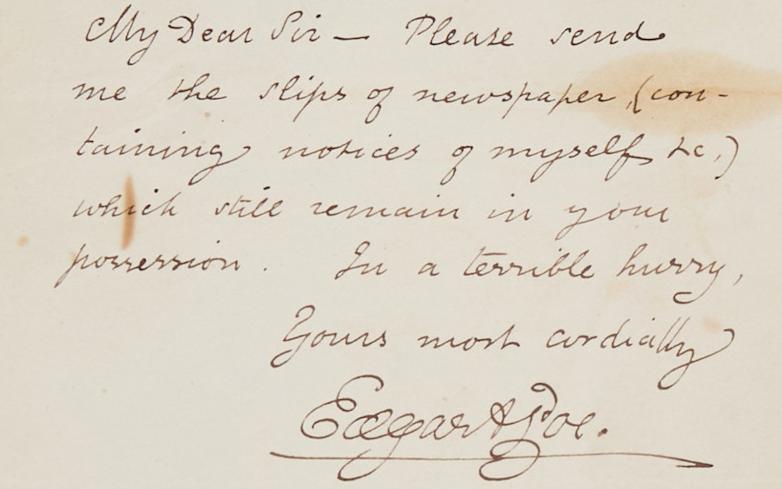 My Dear Sir — Please send
me the slips of newspaper, (con-
taining notices of myself &c.)
which still remain in your
possession. In a terrible hurry,
Yours most cordially
Edgar A Poe.